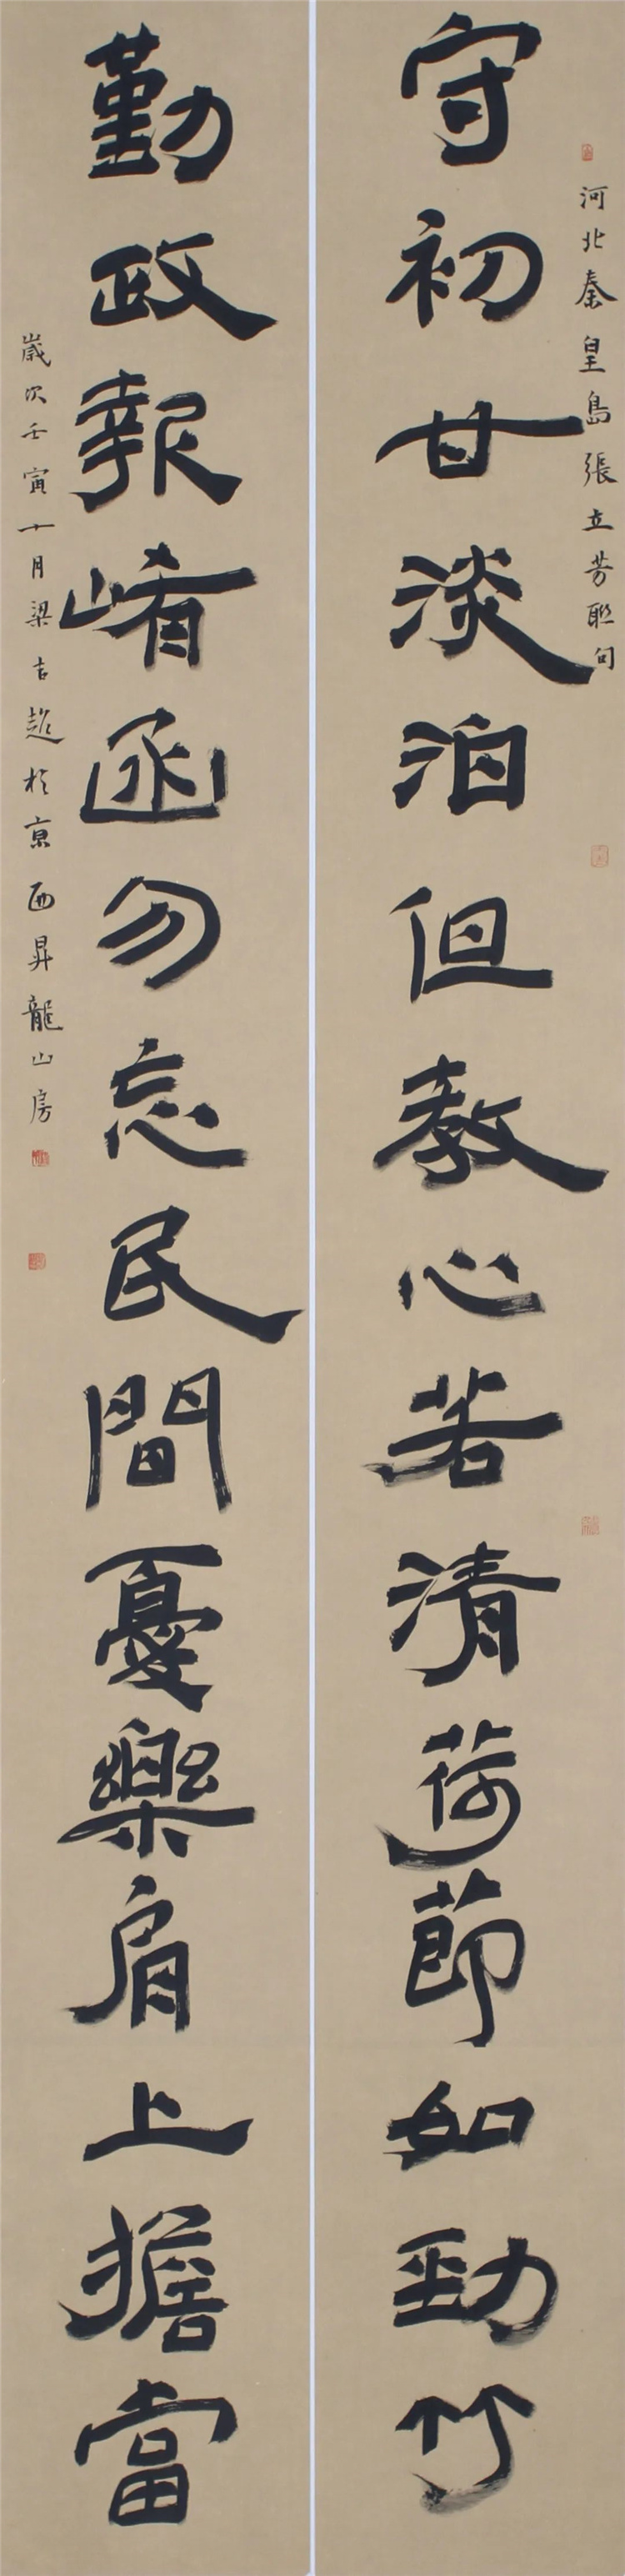 河北秦皇島張立芳聯句
守初甘淡泊但教心若清荷節如勁竹
勤政報崤函勿忘民間憂樂肩上擔當
歲次壬寅十月梁吉超於京西昇龍山房